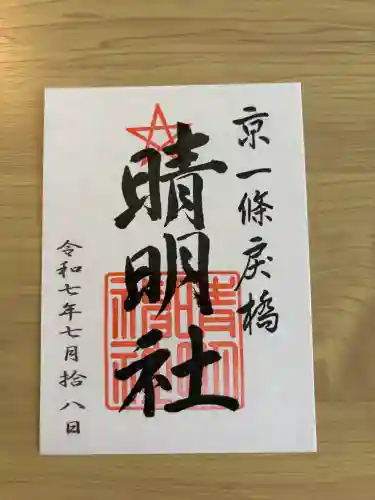 京一條戻橋
晴明社
晴明
神社
令和七年七月拾八日